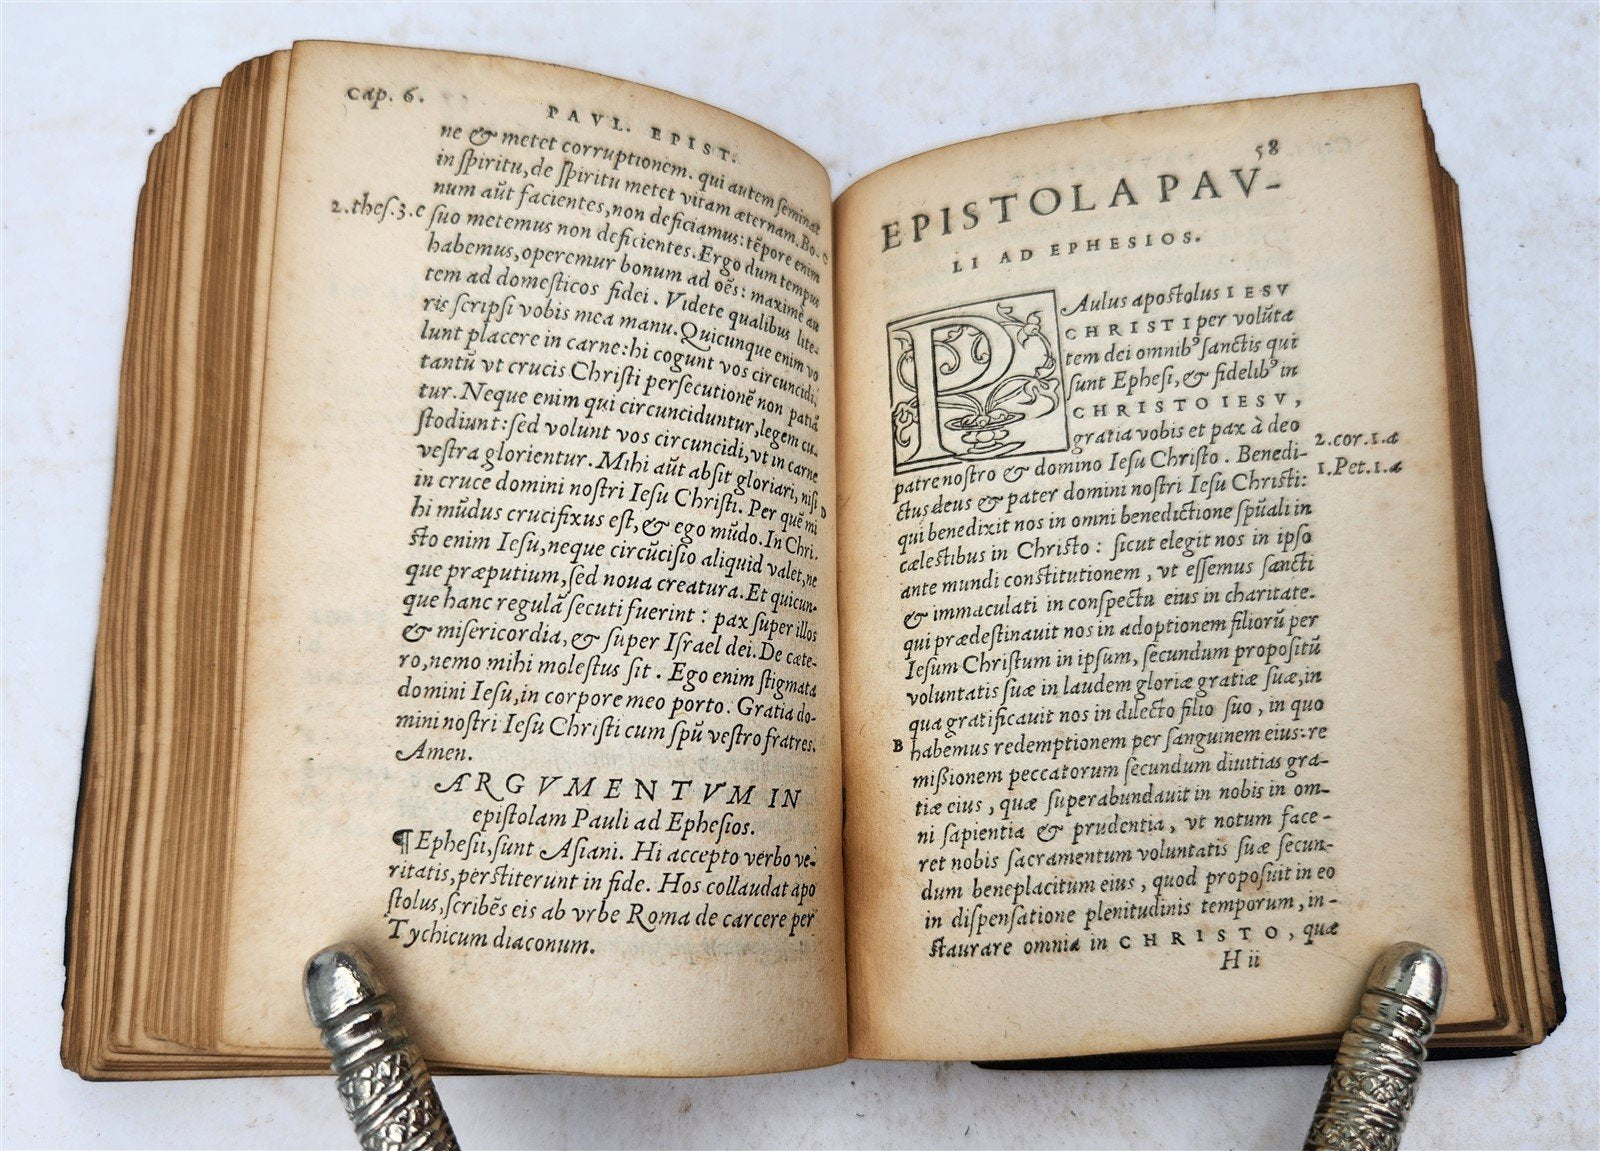 Cap. 6.
PAVL. EPIST.
ne & metet corruptionem. qui autem ſeminat
in ſpiritu, de ſpiritu metet vitam æternam. Bo- C
num aūt facientes, non deficiamus: tēpore enim
2.theſ.3.c ſuo metemus non deficientes. Ergo dum tempus
habemus, operemur bonum ad oēs: maxime au
tem ad domeſticos fidei. Videte qualibus lite-
ris ſcripſi vobis mea manu. Quicunque enim vo
lunt placere in carne: hi cogunt vos circuncidi,
tantū vt crucis Chriſti perſecutionē non patiā
tur. Neque enim qui circunciduntur, legem cu-
ſtodiunt: ſed volunt vos circuncidi, vt in carne
veſtra glorientur. Mihi aūt abſit gloriari, niſi
in cruce domini noſtri Ieſu Chriſti. Per quē mi D
hi mūdus crucifixus eſt, & ego mūdo. In Chri-
ſto enim Ieſu, neque circūciſio aliquid valet, ne
que præputium, ſed noua creatura. Et quicun-
que hanc regulā ſecuti fuerint: pax ſuper illos
& miſericordia, & ſuper Iſrael dei. De cæte-
ro, nemo mihi moleſtus ſit. Ego enim ſtigmata
domini Ieſu, in corpore meo porto. Gratia do-
mini noſtri Ieſu Chriſti cum ſpū veſtro fratres.
Amen.
ARGVMENTVM IN
epiſtolam Pauli ad Epheſios.
¶ Epheſii, ſunt Aſiani. Hi accepto verbo ve-
ritatis, perſtiterunt in fide. Hos collaudat apo
ſtolus, ſcribēs eis ab vrbe Roma de carcere per
Tychicum diaconum.
58
EPISTOLA PAV-
LI AD EPHESIOS.
PAulus apoſtolus IESV
CHRISTI per volūta
tem dei omnibꝰ ſanctis qui
ſunt Epheſi, & fidelibꝰ in
CHRISTO IESV,
gratia vobis et pax à deo 2.cor.1.a
patre noſtro & domino Ieſu Chriſto. Benedi- 1.Pet.1.a
ctus deus & pater domini noſtri Ieſu Chriſti:
qui benedixit nos in omni benedictione ſpūali in
cæleſtibus in Chriſto: ſicut elegit nos in ipſo
ante mundi conſtitutionem, vt eſſemus ſancti
& immaculati in conſpectu eius in charitate.
qui prædeſtinauit nos in adoptionem filiorū per
Ieſum Chriſtum in ipſum, ſecundum propoſitū
voluntatis ſuæ in laudem gloriæ gratiæ ſuæ, in
qua gratificauit nos in dilecto filio ſuo, in quo
B habemus redemptionem per ſanguinem eius: re
miſſionem peccatorum ſecundum diuitias gra-
tiæ eius, quæ ſuperabundauit in nobis in om-
ni ſapientia & prudentia, vt notum face-
ret nobis ſacramentum voluntatis ſuæ ſecun-
dum beneplacitum eius, quod propoſuit in eo
in diſpenſatione plenitudinis temporum, in-
ſtaurare omnia in CHRISTO, quæ
H ii